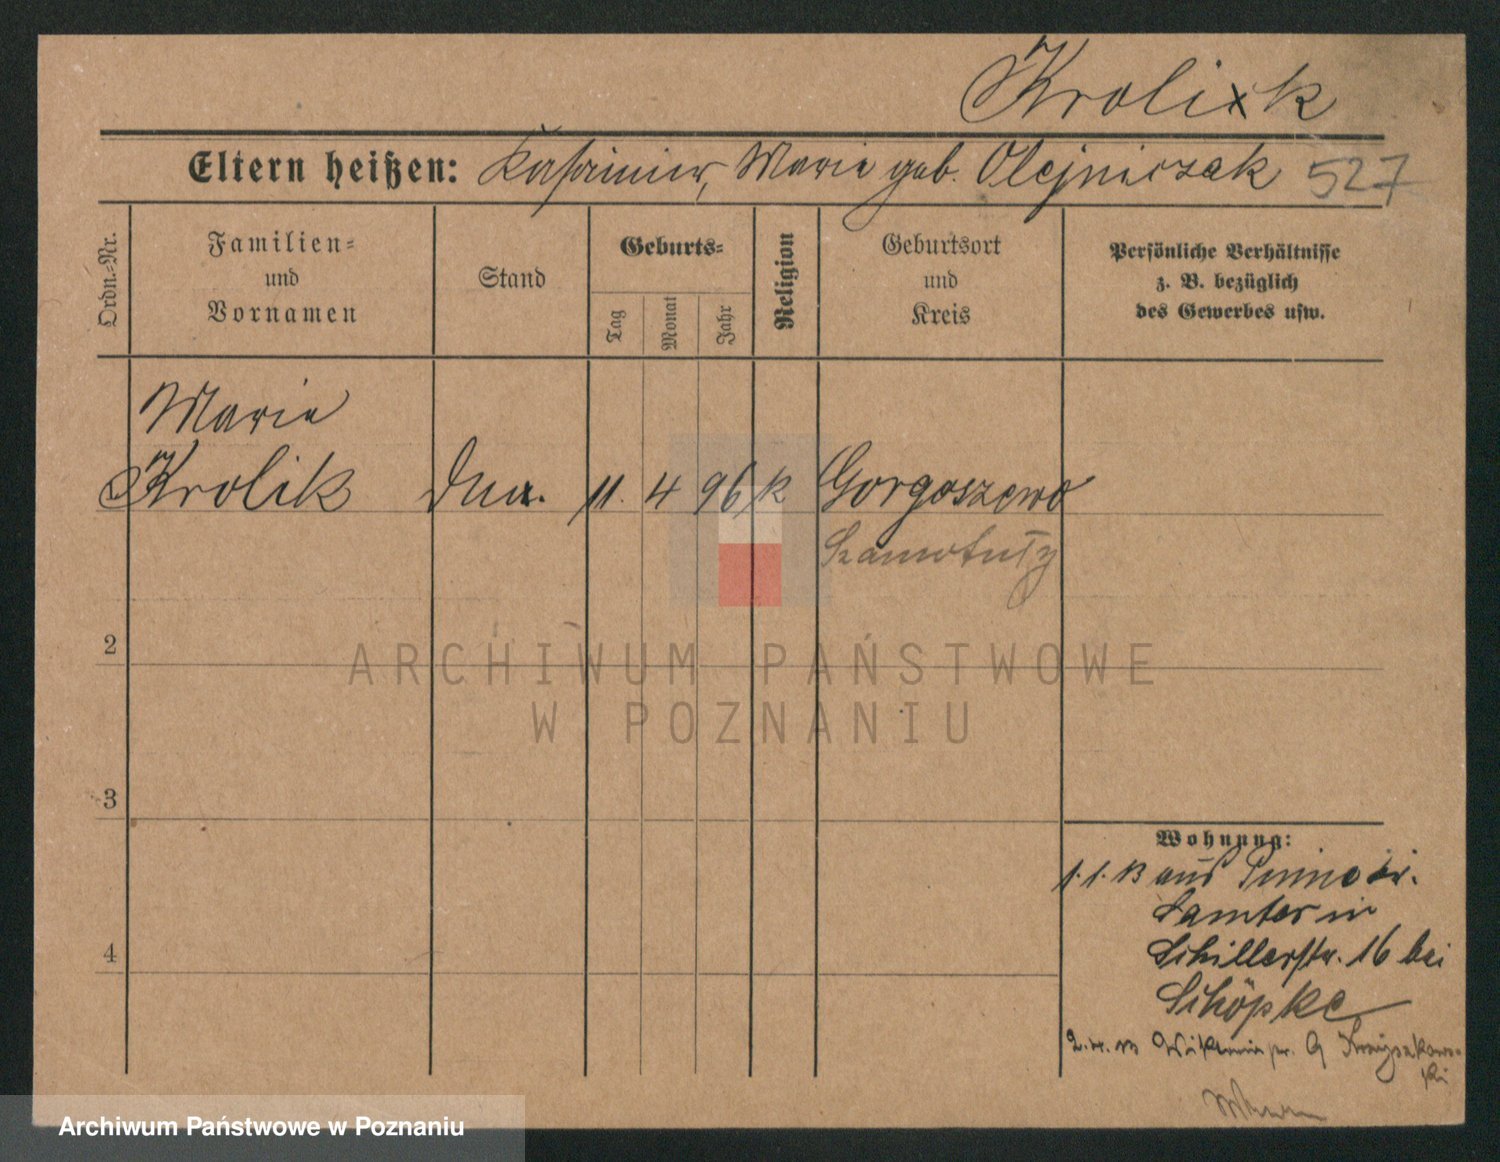 Krolik
Eltern heißen: Kasimier, Marie geb. Olejniczak 527
Ordn.-Nr.
Familien-
und
Vornamen
Stand
Geburts-
Tag
Monat
Jahr
Religion
Geburtsort
und
Kreis
Persönliche Verhältnisse
z. B. bezüglich
des Gewerbes usw.
Marie
Krolik
11. 4 96 k Gorgoszewo
Szamotuły
2
3
4
Wohnung:
1.1.13 aus
Samter in
Schillerstr. 16 bei
Schöpke
ARCHIWUM PAŃSTWOWE
W POZNANIU
Archiwum Państwowe w Poznaniu